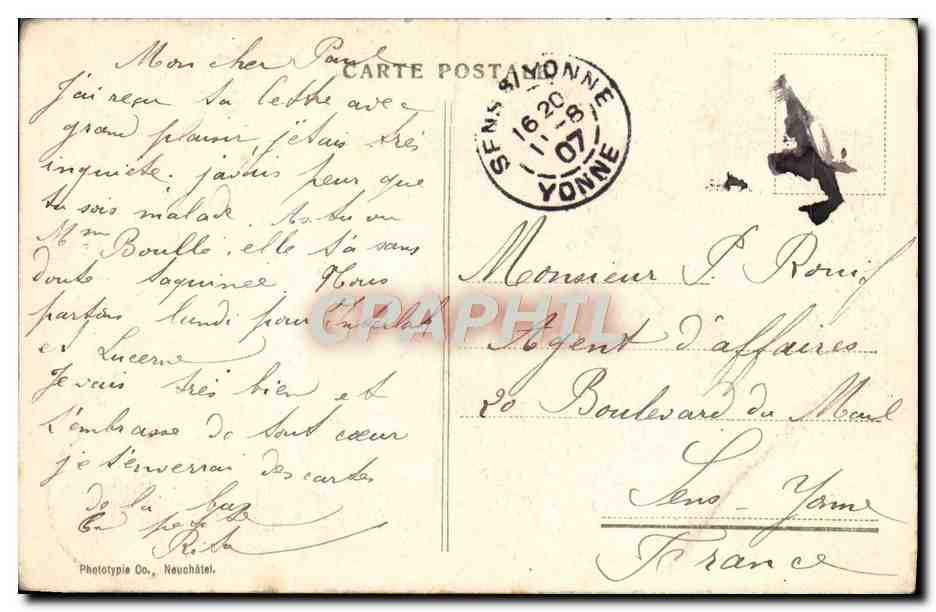 CARTE POSTALE
Mon cher Paul
J'ai reçu ta lettre avec
grand plaisir, j'étais très
inquiète. j'avais peur que
tu sois malade. As-tu vu
Mme Boullé, elle t'a sans
doute taquinée. Nous
partons lundi pour Interlak
et Lucerne
Je vais très bien et
t'embrasse de tout cœur
je t'enverrai des cartes
de là bas
Ta petite
Rita
Phototypie Co., Neuchâtel.
SENS S/YONNE
16 20
1 -8
07
YONNE
Monsieur P.
Agent d'affaires
20 Boulevard du Mail
Sens - Yonne
France
CPAPHIL